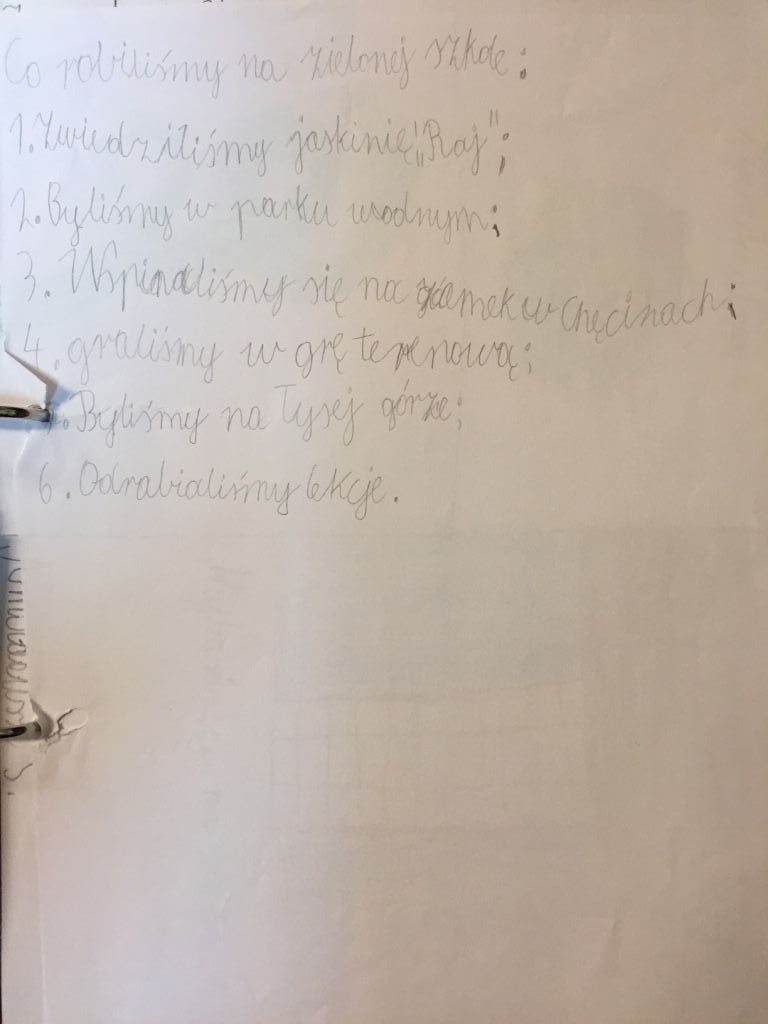 Co robiliśmy na zielonej szkole:
1. Zwiedziliśmy jaskinię "Raj";
2. Byliśmy w parku wodnym;
3. Wspinaliśmy się na zamek w Chęcinach;
4. graliśmy w grę terenową;
5. Byliśmy na Łysej górze;
6. Odrabialiśmy lekcje.